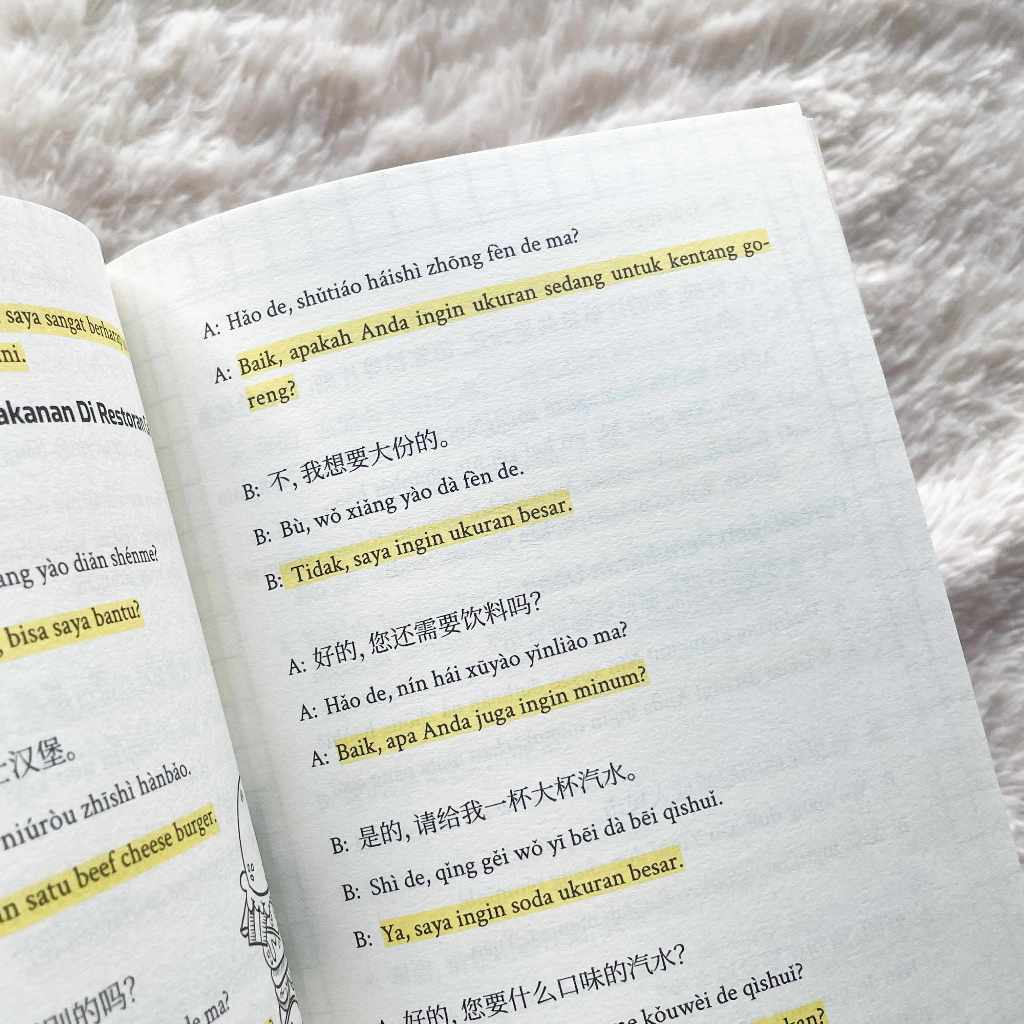 saya sangat berharap
ni.
akanan Di Restoran
ang yào diǎn shénme?
bisa saya bantu?
士汉堡。
niúròu zhīshì hànbǎo.
satu beef cheese burger.
别的吗?
de ma?
A: Hǎo de, shǔtiáo háishì zhōng fèn de ma?
A: Baik, apakah Anda ingin ukuran sedang untuk kentang go-
reng?
B: 不, 我想要大份的。
B: Bù, wǒ xiǎng yào dà fèn de.
B: Tidak, saya ingin ukuran besar.
A: 好的, 您还需要饮料吗?
A: Hǎo de, nín hái xūyào yǐnliào ma?
A: Baik, apa Anda juga ingin minum?
B: 是的, 请给我一杯大杯汽水。
B: Shì de, qǐng gěi wǒ yī bēi dà bēi qìshuǐ.
B: Ya, saya ingin soda ukuran besar.
A: 好的, 您要什么口味的汽水?
me kǒuwèi de qìshuǐ?
kan?